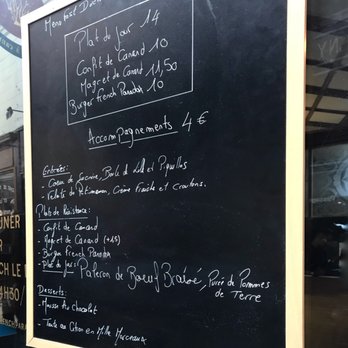 Plat du Jour 14
Confit de Canard 10
Magret de Canard 11,50
Burger French Paradox 10
Accompagnements 4 €
Entrées:
- Coeur de Sucrine, et Piquillos
- Velouté de Potimarron, Crème Fraîche et Croutons.
Plats de Résistance:
- Confit de Canard
- Magret de Canard (+1,5)
- Burger French Paradox
- Plat du Jour: Paleron de Boeuf Braisé, Purée de Pommes
de Terre
Desserts:
- Mousse Au Chocolat
- Tarte au Citron en Mille Morceaux